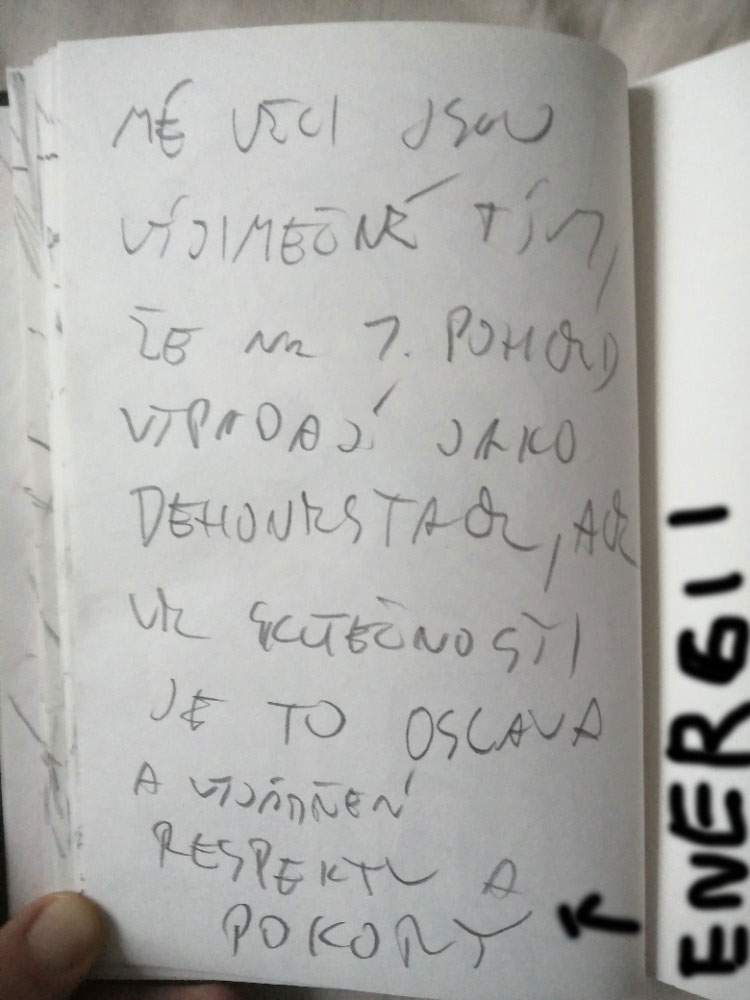 MÉ VĚCI JSOU
VÝJIMEČNÉ TÍM,
ŽE NA 1. POHLED
VYPADAJÍ JAKO
DEHONESTACE, ALE
VE SKUTEČNOSTI
JE TO OSLAVA
A VYJÁDŘENÍ
RESPEKTU A
POKORY
ENERGII